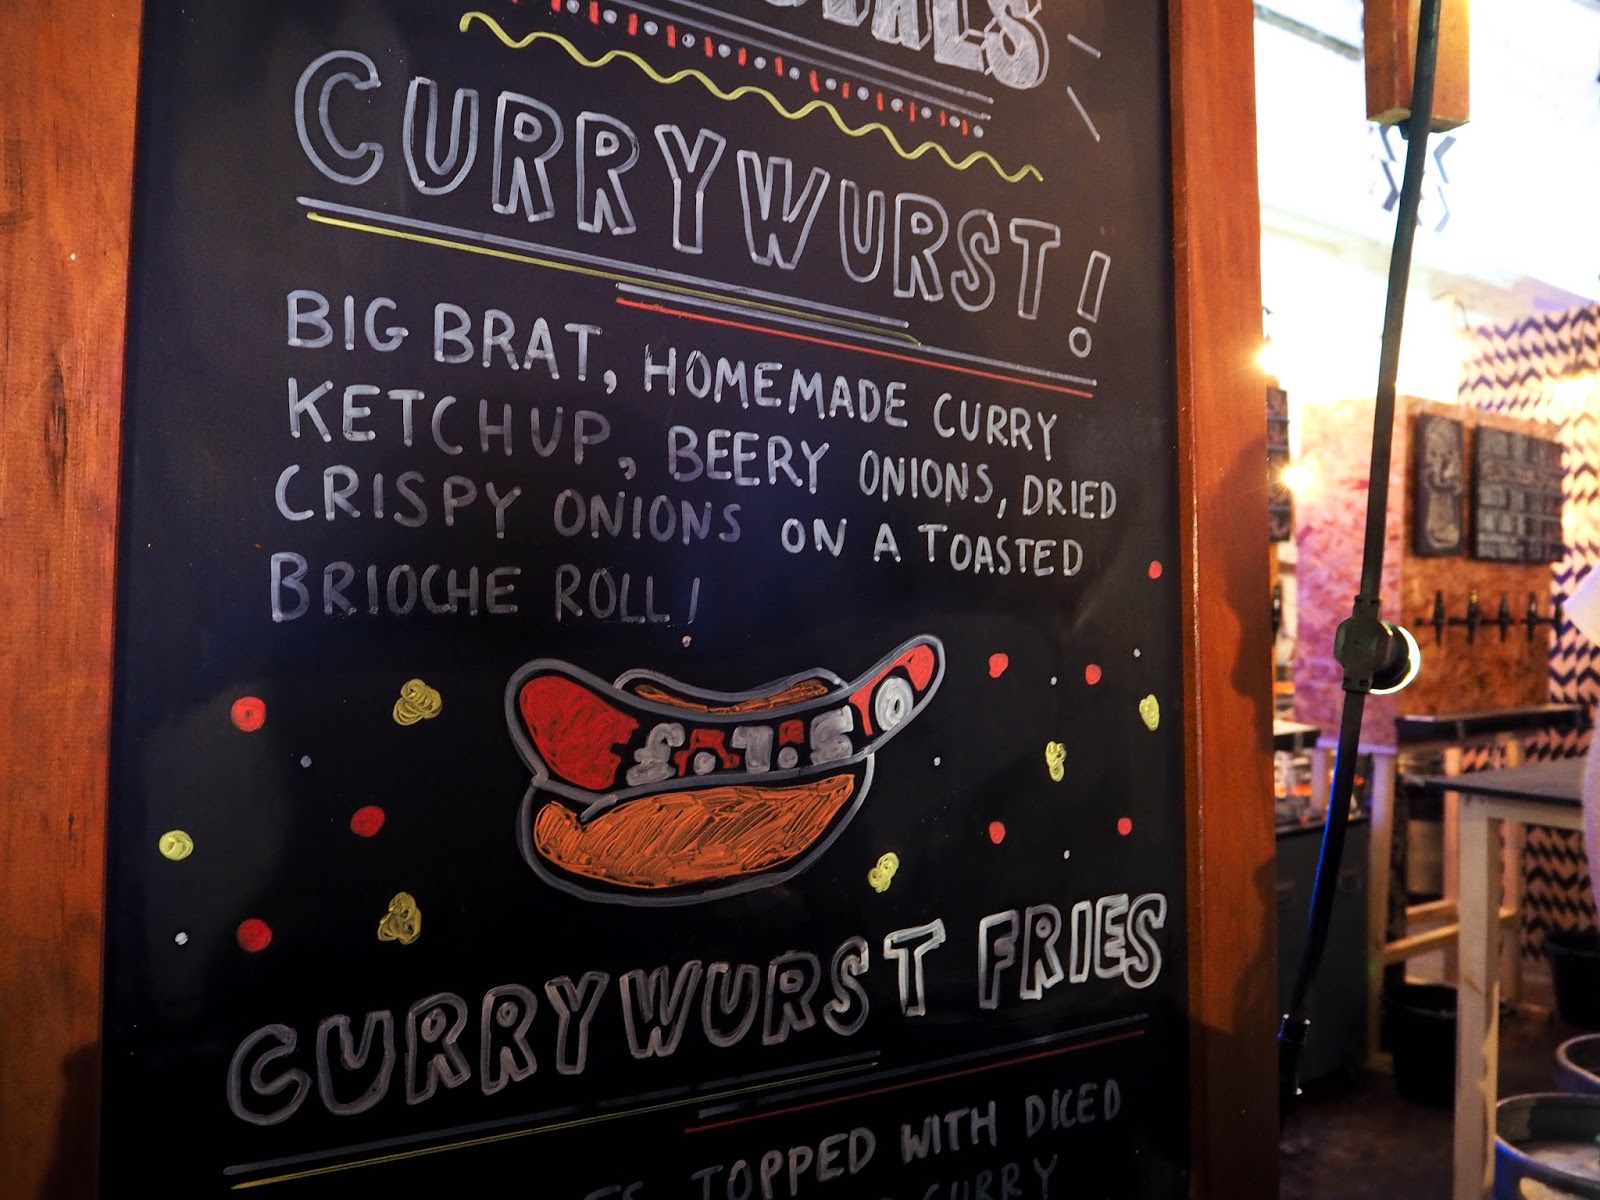 CURRYWURST!
BIG BRAT, HOMEMADE CURRY
KETCHUP, BEERY ONIONS, DRIED
CRISPY ONIONS ON A TOASTED
BRIOCHE ROLL!
£7.50
CURRYWURST FRIES
TOPPED WITH DICED
CURRY